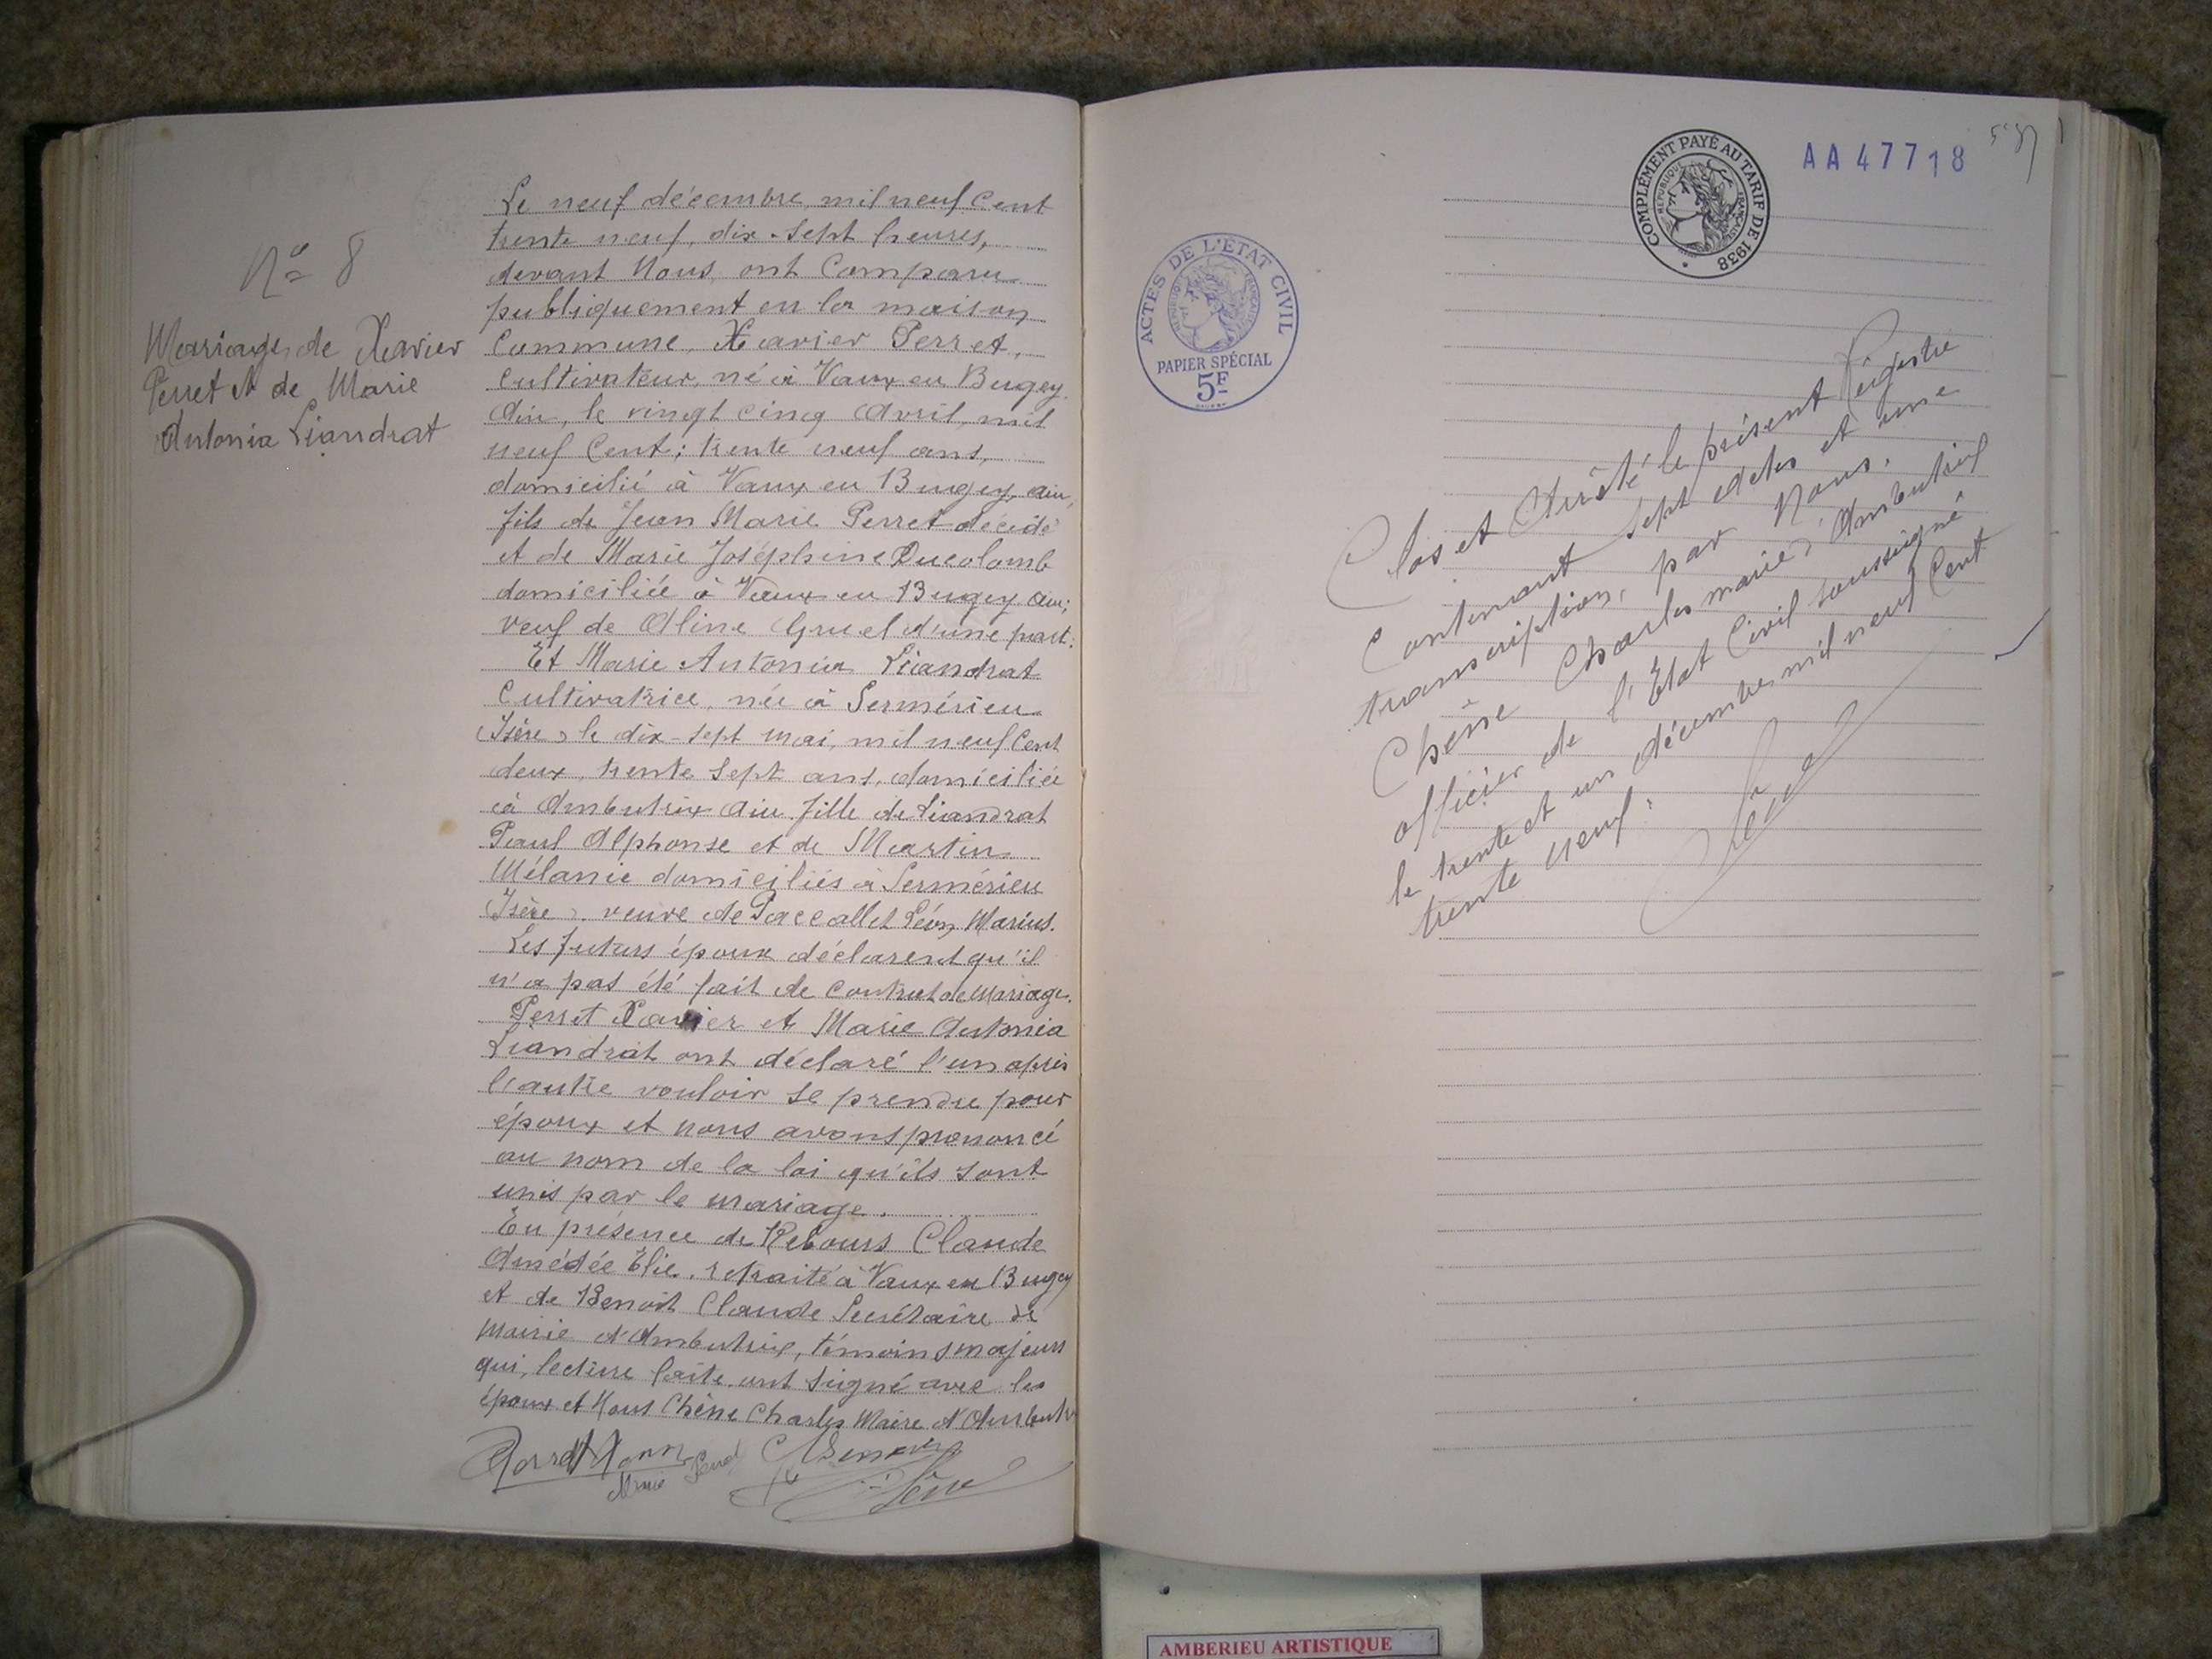 N° 8
Mariage de Xavier
Perret et de Marie
Antonia Liandrat
Le neuf décembre, mil neuf cent
trente neuf, dix-sept heures,
devant Nous, ont comparu
publiquement en la maison
Commune, Xavier Perret,
cultivateur, né à Vaux en Bugey
Ain, le vingt cinq Avril, mil
neuf Cent; trente neuf ans,
domicilié à Vaux en Bugey, Ain,
fils de Jean Marie Perret décédé
et de Marie Joséphine Ducolomb
domiciliée à Vaux en Bugey Ain;
veuf de Aline Gruel d'une part.
Et Marie Antonia Liandrat
Cultivatrice, née à Sermérieu
(Isère) le dix-sept Mai, mil neuf Cent
deux, trente sept ans, domiciliée
à Ambutrix Ain. fille de Liandrat
Paul Alphonse et de Martin
Mélanie domiciliés à Sermérieu
(Isère). veuve de Paccallet Léon, Marius.
Les futurs époux déclarent qu'il
n'a pas été fait de contrat de Mariage.
Perret Xavier et Marie Antonia
Liandrat ont déclaré l'un après
l'autre vouloir se prendre pour
époux et nous avons prononcé
au nom de la loi qu'ils sont
unis par le mariage.
En présence de Rebours Claude
Amédée Elie, retraité à Vaux en Bugey
et de Benoit Claude Secrétaire de
Mairie d'Ambutrix, témoins majeurs
qui, lecture faite ont signé avec les
époux et Nous Chêne Charles Maire d'Ambutrix
Perret
Marie
Chêne
ACTES DE L'ETAT CIVIL
REPUBLIQUE FRANÇAISE
PAPIER SPÉCIAL
5F
COMPLÉMENT PAYÉ AU TARIF DE 1938
REPUBLIQUE FRANÇAISE
AA 47718
Clos et Arrêté le présent Registre
Contenant sept actes et une
transcription, par Nous,
Chêne Charles maire d'Ambutrix
officier de l'Etat Civil soussigné
le trente et un décembre, mil neuf Cent
trente neuf.
Chêne
AMBERIEU ARTISTIQUE